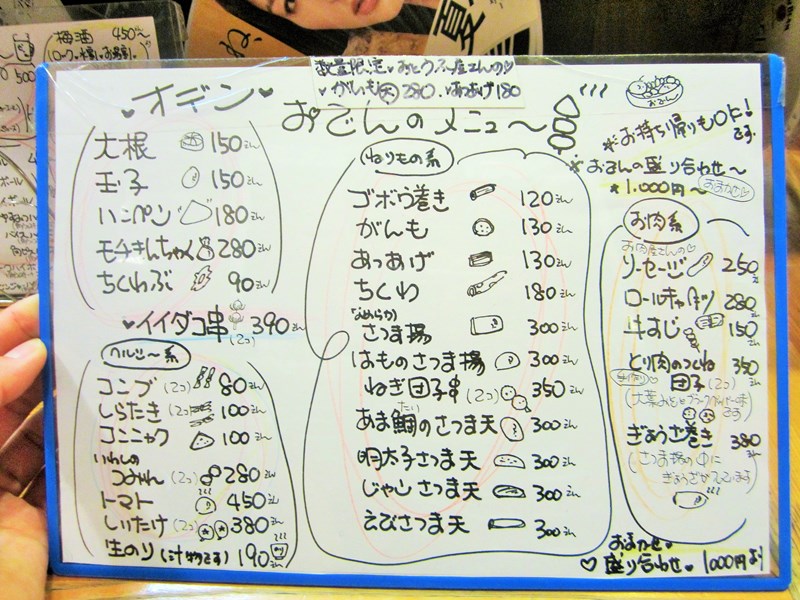 梅酒 450〜
数量限定・おとうふ屋さんの♡
♥がんも 280 あつあげ180
♥オデン♥
おでんのメニュ〜
おでん
※お持ち帰りもOK!
です。
※おでんの盛り合わせ〜
*1.000円〜 おまかせ♡
大根 150えん
玉子 150えん
ハンペン 180えん
モチきんちゃく 280えん
ちくわぶ 90えん
♥イイダコ串 (2コ) 390えん
ヘルシ〜系
コンブ (2コ) 80えん
しらたき (2コ) 100えん
コンニャク 100えん
いわしの
つみれ (2コ) 280えん
トマト 450えん
しいたけ (2コ) 380えん
生のり (汁物です) 190えん
ねりもの系
ゴボウ巻き 120えん
がんも 130えん
あつあげ 130えん
ちくわ 180えん
なめらか
さつま揚 300えん
はものさつま揚 300えん
ねぎ団子串 (2コ) 350えん
あま鯛のさつま天 300えん
たい
明太子さつま天 300えん
じゃがさつま天 300えん
えびさつま天 300えん
お肉系
お肉屋さんの♡
ソーセージ 250えん
ロールキャベツ 280えん
牛すじ 150えん
とり肉のつくね 350えん
団子 (2コ)
です
ぎょうざ巻き 380えん
(さつま揚の中に
ぎょうざが入ってます)
おまかせ♥
♡盛り合わせ♥ 1000円より